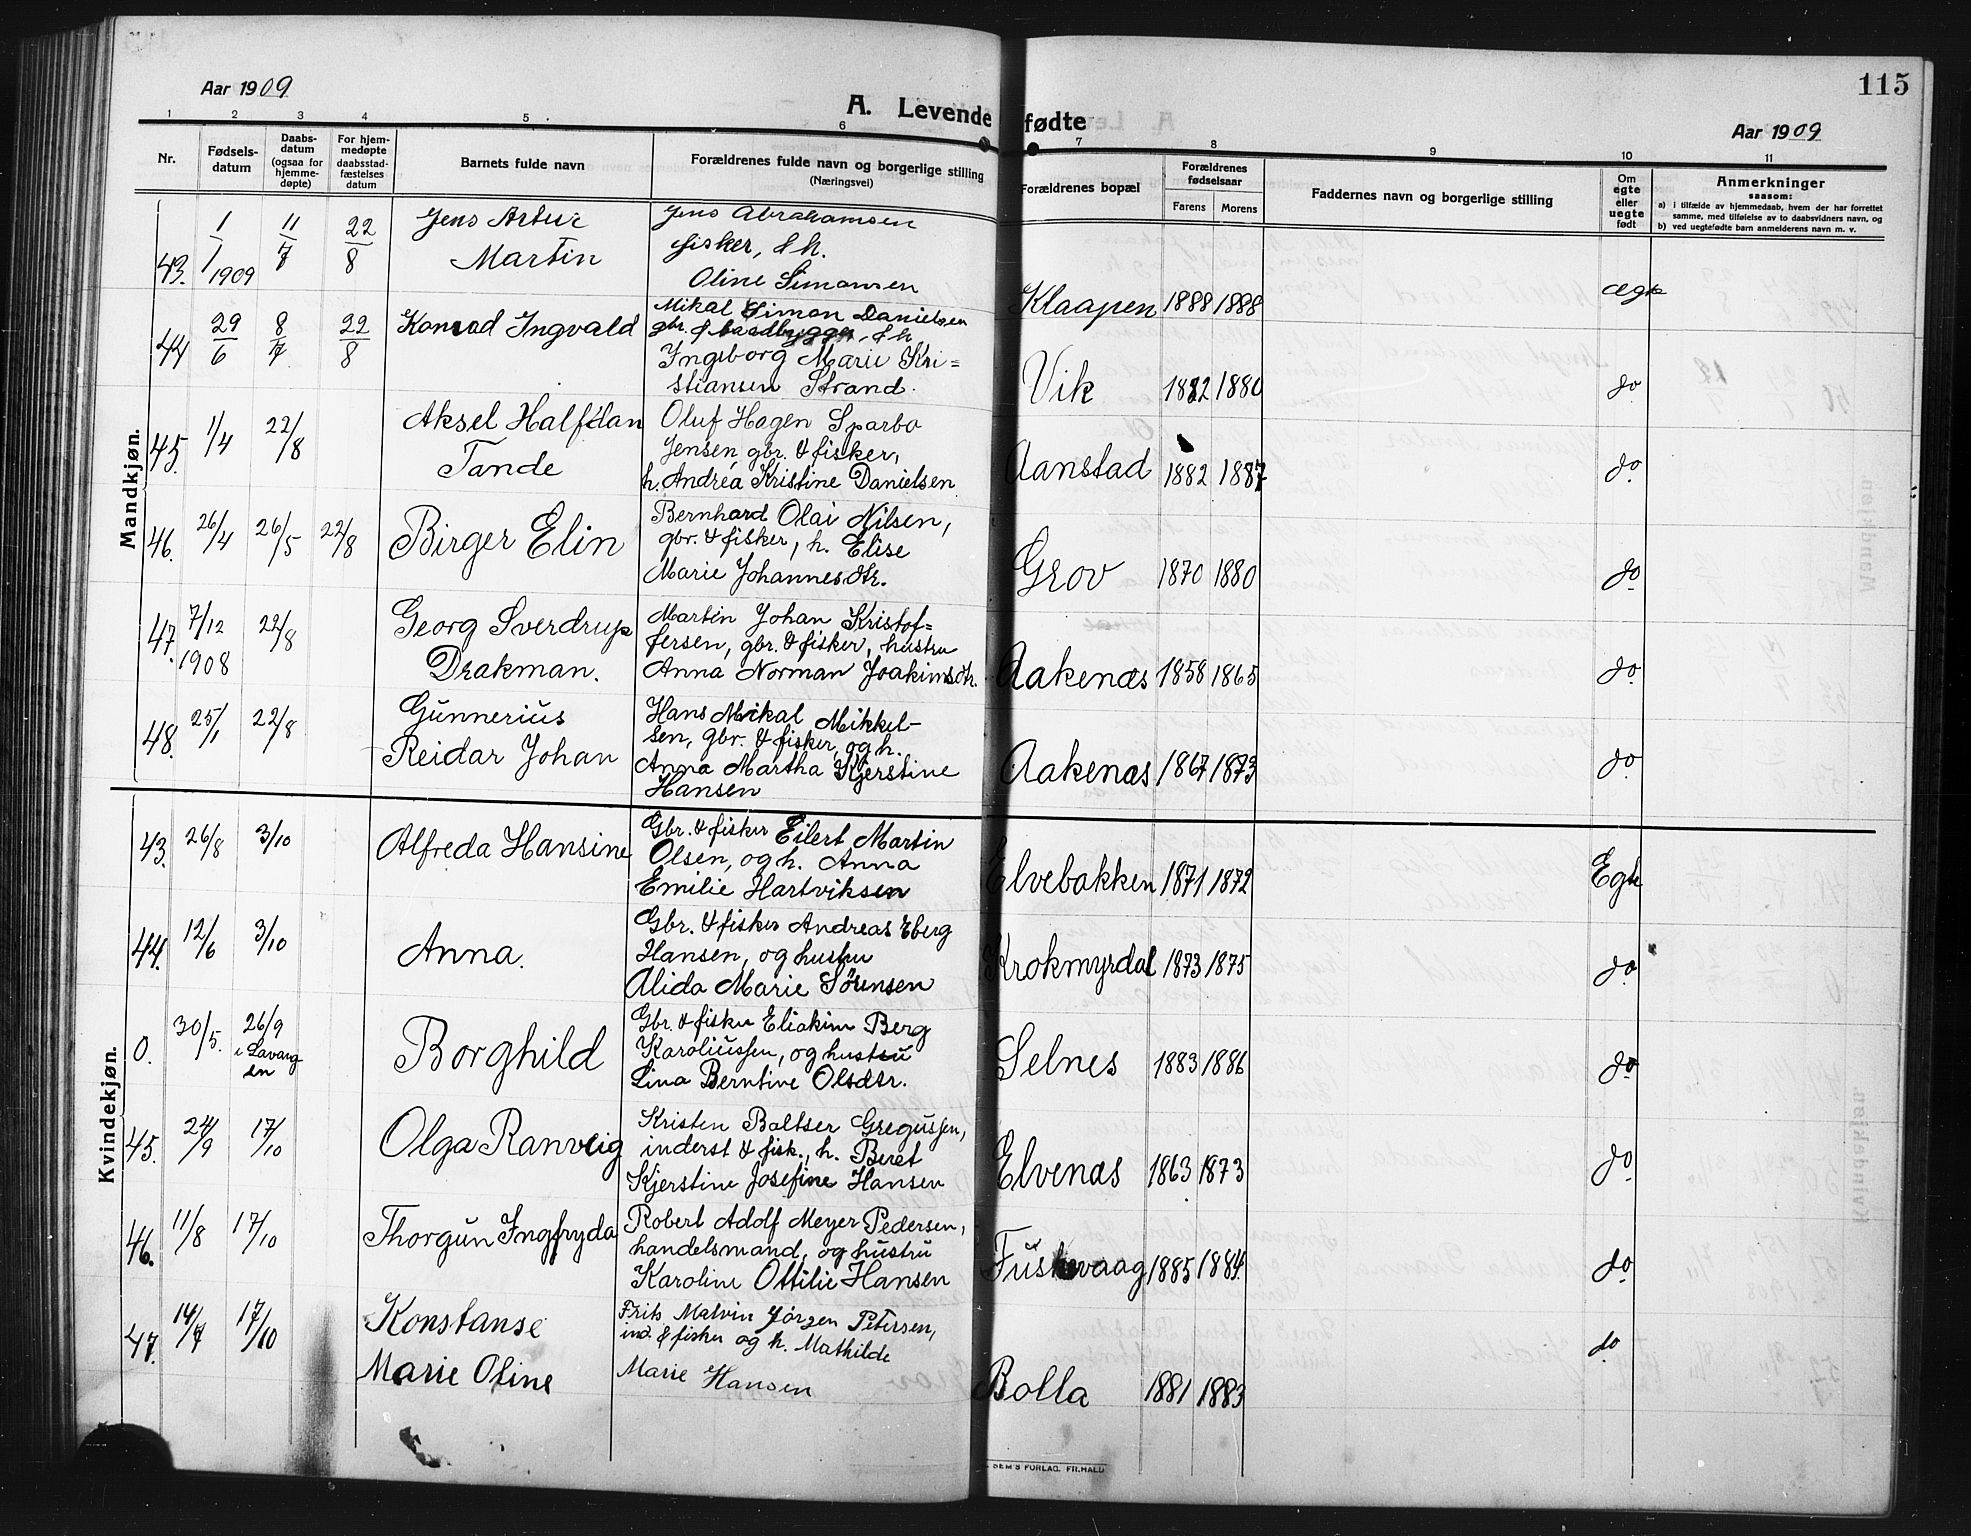 115
Aar 1909
A. Levende fødte
Aar 1909
1 2 3 4 5 6 7 8 9 10 11
Nr.
Fødsels-
datum
Daabs-
datum
(ogsaa for
hjemme-
døpte)
For hjem-
medøpte
daabsstad-
fæstelses
datum
Barnets fulde navn
Forældrenes fulde navn og borgerlige stilling
(Næringsvei)
Forældrenes bopæl
Forældrenes
fødselsaar
Farens Morens
Faddernes navn og borgerlige stilling
Om
egte
eller
uegte
født
Anmerkninger
saasom:
a) i tilfælde av hjemmedaab, hvem der har forrettet
samme, med tilføielse av to daabsvidners navn, og
b) ved uegtefødte barn anmelderens navn m. v.
Mandkjøn.
43. 1/7 1909 11/7 22/8
Jens Artur
Martin
Jens Abrahamsen
fisker, & h.
Oline Simonsen
Klaapen 1888 1888 ægte
44 29/6 8/7 22/8
Konrad Ingvald
Mikal Simon Danielsen
gbr. & baadbygger, & h
Ingeborg Marie Kri=
stiansen Strand.
Vik 1882 1880 do
45. 1/4 22/8
Aksel Halfdan
Tande
Oluf Hagen Sparbo
Jensen, gbr. & fisker,
h. Andrea Kristine Danielsen
Aanstad 1882 1887 do.
46. 26/4 26/5 22/8
Birger Elin
Bernhard Olai Nilsen,
gbr. & fisker, h. Elise
Marie Johannesdtr.
Grov 1870 1880 do.
47. 7/12 1908 22/8
Georg Sverdrup
Drakman.
Martin Johan Kristof=
fersen, gbr. & fisker, hustru
Anna Norman Joakimsdtr.
Aakenæs 1858 1865 do.
48. 25/1 22/8
Gunnerius
Reidar Johan
Hans Mikal Mikkel-
sen, gbr. & fisker, og h.
Anna Martha Kjerstine
Hansen
Aakenæs 1867 1873 do.
Kvindekjøn.
43. 26/8 3/10
Alfreda Hansine
Gbr. & fisker Eilert Martin
Olsen, og h. Anna
Emilie Hartviksen
Elvebakken 1871 1872 Egte
44. 12/6 3/10
Anna.
Gbr. & fisker Andreas Eberg
Hansen, og hustru
Alida Marie Sørensen
Krokmyrdal 1873 1875 do.
0. 30/5. 26/9
i Lavang
en
Borghild
Gbr. & fisker Eliakim Berg
Karoliussen, og hustru
Lina Berntine Olsdtr.
Selnes 1883 1886 do.
45. 24/9 17/10
Olga Ranveig
Kristen Baltser Gregussen,
inderst & fisk., h. Beret
Kjerstine Josefine Hansen
Elvenæs 1863 1873 do.
46. 11/8 17/10
Thorgun Ingfryda
Robert Adolf Meyer Pedersen,
handelsmand, og hustru
Karoline Ottilie Hansen
Fuskevaag 1885 1884. do.
47. 14/7 17/10
Konstanse
Marie Oline
Frits Malvin Jørgen Petersen,
ind. & fisker og h. Mathilde
Marie Hansen
Bolla 1881 1883 do.
SEM'S FORLAG. FR.HALD